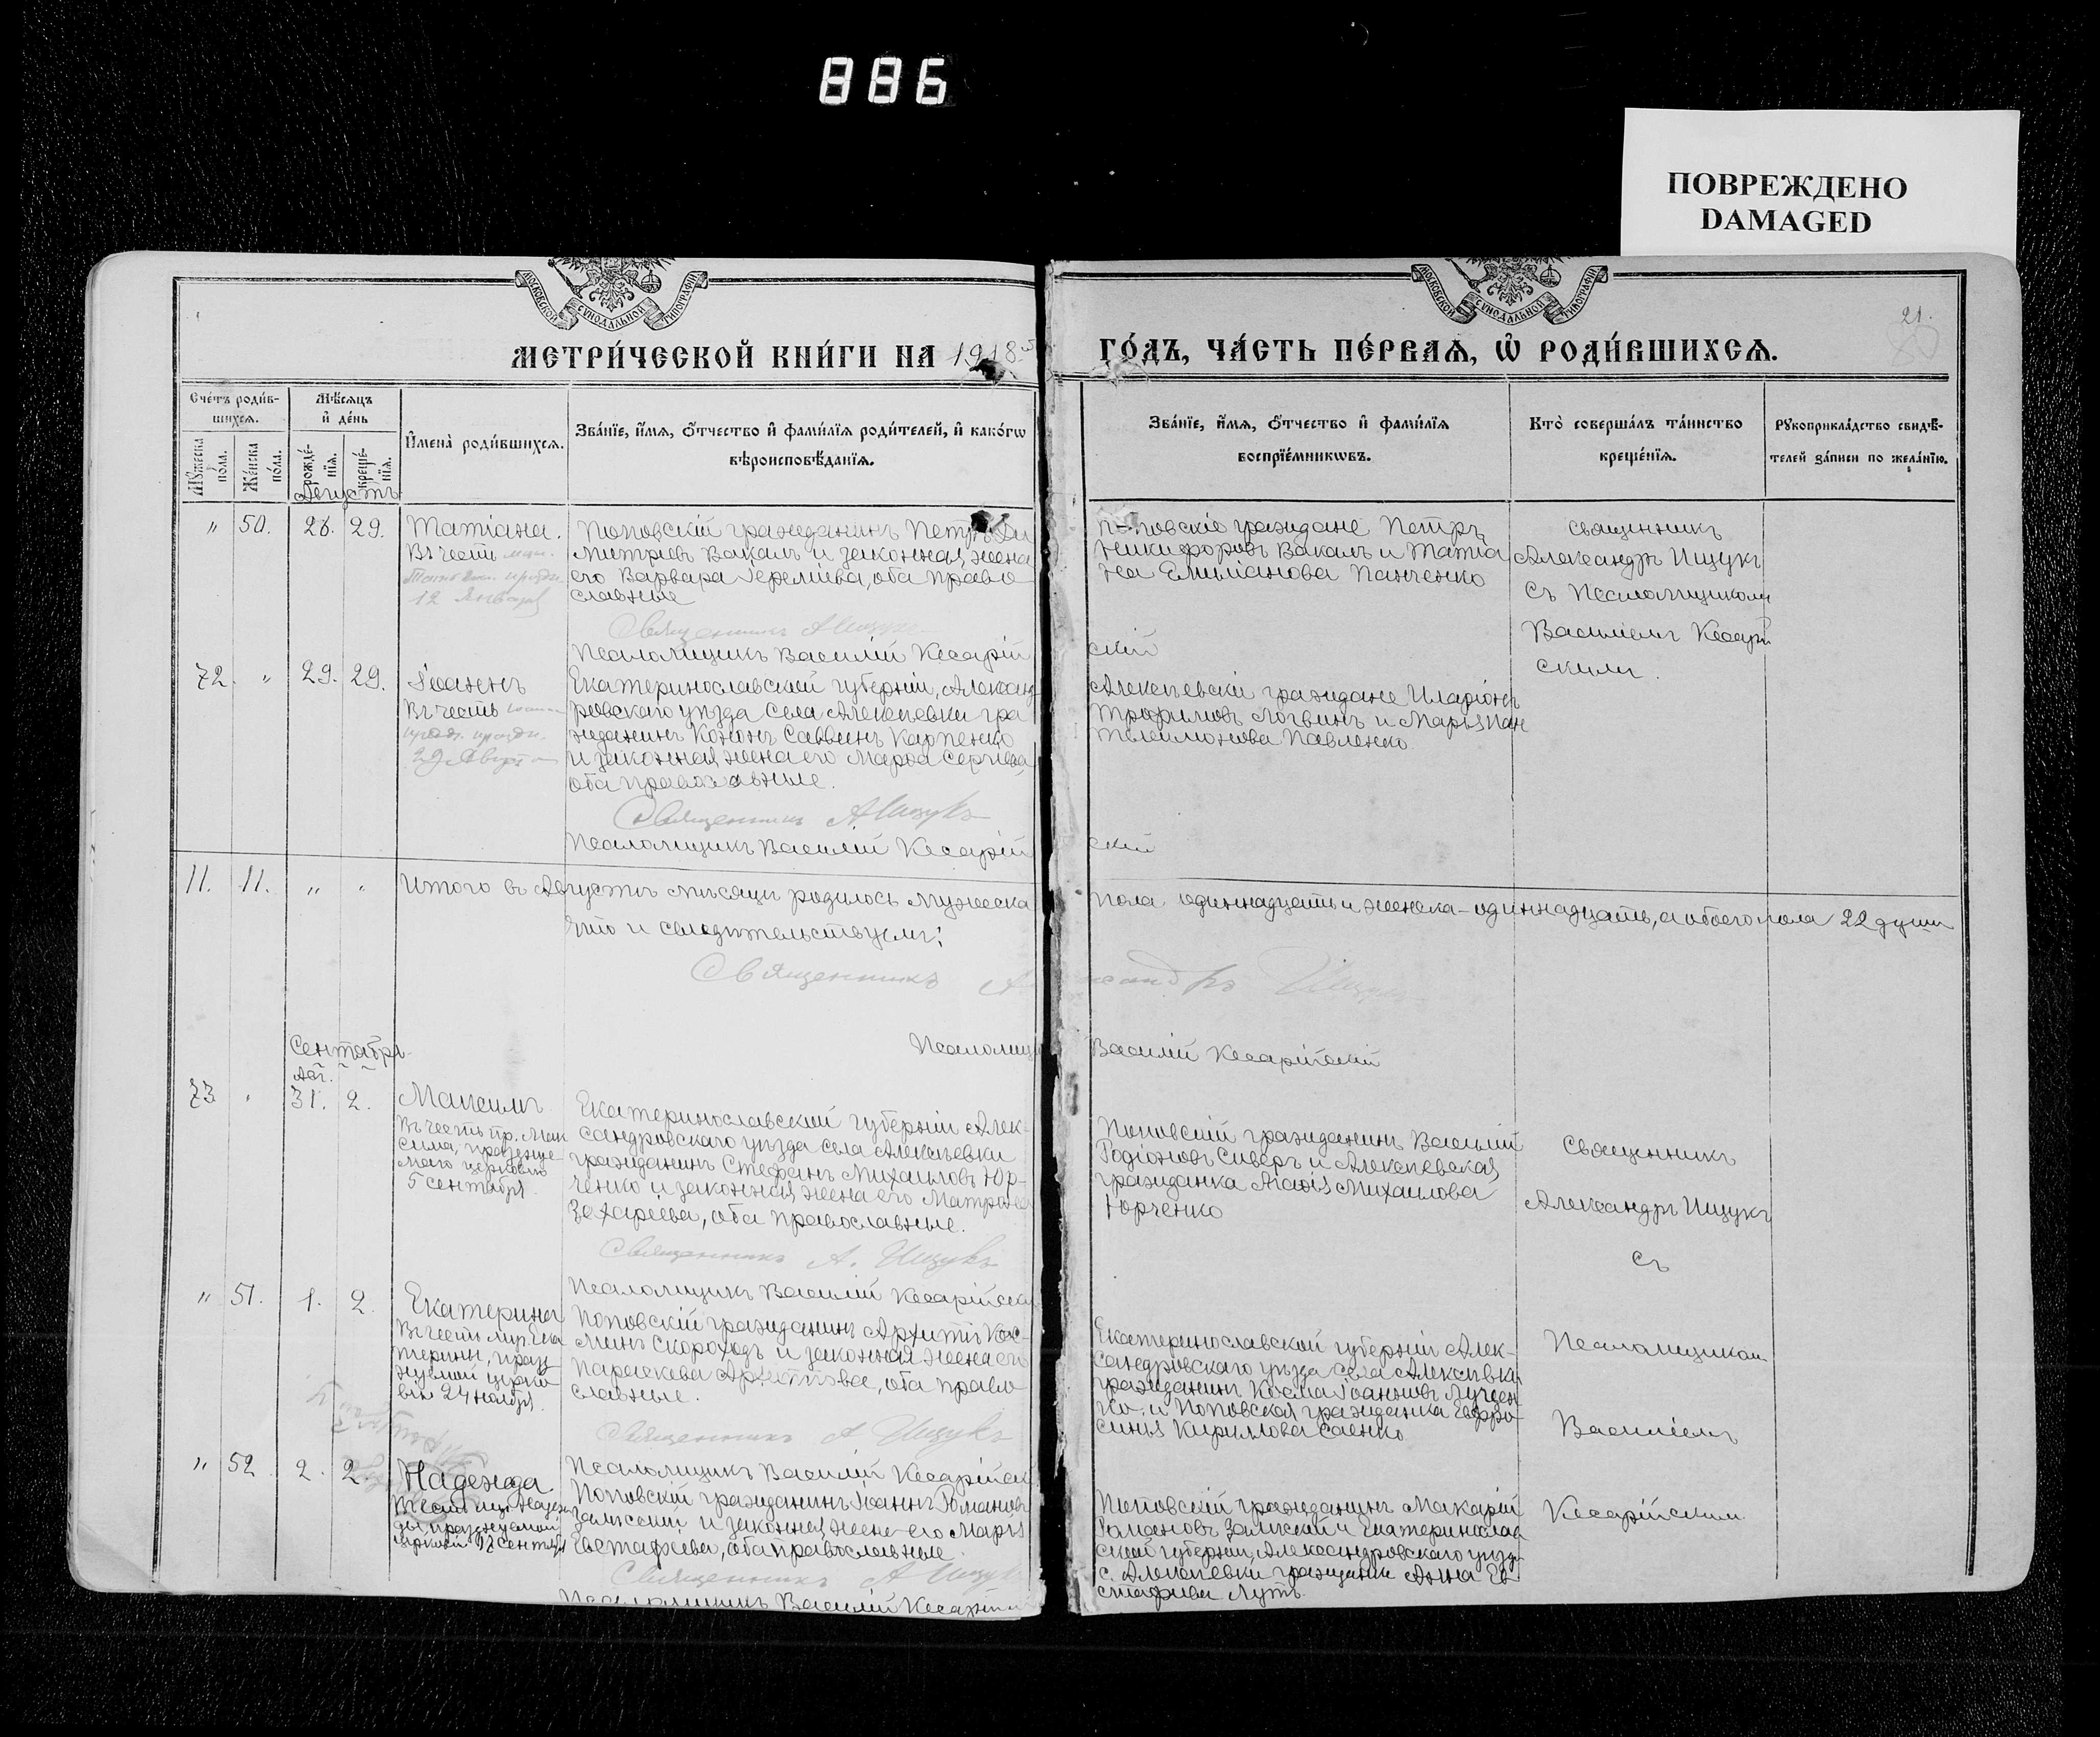 886
ПОВРЕЖДЕНО
DAMAGED
МОСКОВСКОЙ СѴНОДАЛЬНОЙ ТИПОГРАФІИ
МОСКОВСКОЙ СѴНОДАЛЬНОЙ ТИПОГРАФІИ
21.
МЕТРИ́ЧЕСКОЙ КНИ́ГИ НА 1918
ГО́ДЪ, ЧА́СТЬ ПЕ́РВАЯ, Ѡ҆ РОДИ́ВШИХСЯ.
Сче́тъ роди́в-
шихся.
Му́жеска по́ла.
Же́нска по́ла.
Мѣ́сяцъ
и҆ де́нь
рожде́-
нїя.
креще́-
нїя.
И҆мена̀ роди́вшихся.
Зва́нїе, и҆́мя, ѻ҆́тчество и҆ фами́лїя роди́телей, и҆ како́гѡ
вѣроисповѣ́данїя.
Зва́нїе, и҆́мя, ѻ҆́тчество и҆ фами́лїя
воспрїе́мникѡвъ.
Кто̀ соверша́лъ та́инство
креще́нїя.
Рꙋкоприкла́дство свидѣ́-
телей за́писи по жела́нїю.
Августъ
" 50. 28. 29. Татіана.
Въ честь
12 Января
Поповскій гражданинъ Петръ Ди
митріевъ Вакалъ и законная жена
его Варвара Іереміева, оба право
славные
Священникъ АИщукъ
Псаломщикъ Василій Кесарій
скій
Поповскіе граждане Петръ
Никифоровъ Вакалъ и Татіа
на Емиліанова Панченко
Священникъ
Александръ Ищукъ
съ Псаломщикомъ
Василіемъ Кесарій
скимъ.
72. " 29. 29. Іоаннъ
Въ честь
29 Августа
Екатеринославской губерніи, Александ
ровскаго уѣзда села Алексѣевки гра
жданинъ Кононъ Саввинъ Карпенко
и законная жена его Марѳа Сергіева,
оба православные.
Священникъ АИщукъ
Псаломщикъ Василій Кесарій
скій
Алексѣевскіе граждане Иларіонъ
Трофимовъ Логвинъ и Марія Пан
телеимонова Павленко
11. 11. " " Итого въ Августѣ мѣсяцѣ родилось мужеска
пола одиннадцать и женска - одиннадцать, а обоего пола 22 души
Что и свидѣтельствуемъ:
Священникъ Александръ Ищукъ
Псаломщи
Василій Кесарійскій
Сентябрь
Авг.
73 " 31. 2. Максимъ
Въ честь пр. Мак
сима, праздуе
маго церковію
5 сентября.
Екатеринославской губерніи Алек-
сандровскаго уѣзда села Алексѣевки
гражданинъ Стефанъ Михаиловъ Юр-
ченко и законная жена его Матрона
Захаріева, оба православные.
Священникъ А. Ищукъ
Псаломщикъ Василій Кесарійскій
Поповскій гражданинъ Василій
Родіоновъ Сиверъ и Алексѣевская
гражданка Марія Михаилова
Юрченко
Священникъ
Александръ Ищукъ
съ
" 51. 1. 2. Екатерина
Въ честь мц. Ека
терины, празд
нуемой церко
вію 24 ноября.
Поповскій гражданинъ Архиппъ Кос-
минъ Скороходъ и законная жена его
Параскева Архиппова, оба право
славные.
Священникъ А Ищукъ
Псаломщикъ Василій Кесарійск
Екатеринославской губерніи Алек-
сандровскаго уѣзда села Алексѣевки
гражданинъ Косма Іоанновъ Луцен
ко и Поповская гражданка Евфро
синія Кириллова Саенко
Псаломщикомъ
Василіемъ
" 52 2. 2. Надежда
Въ честь мц. Надеж
ды, празднуемой
церковію 17 Сентября
Поповскій гражданинъ Іоаннъ Романовъ
Замскій и законная жена его Марія
Евстафіева, оба православные.
Священникъ А Ищукъ
Псаломщикъ Василій Кесарійскі
Поповскій гражданинъ Макарій
Романовъ Замскій и Екатеринослав
ской губерніи, Александровскаго уѣзда
с. Алексѣевки гражданка Анна Ев
стафіева Лутъ.
Кесарійскимъ